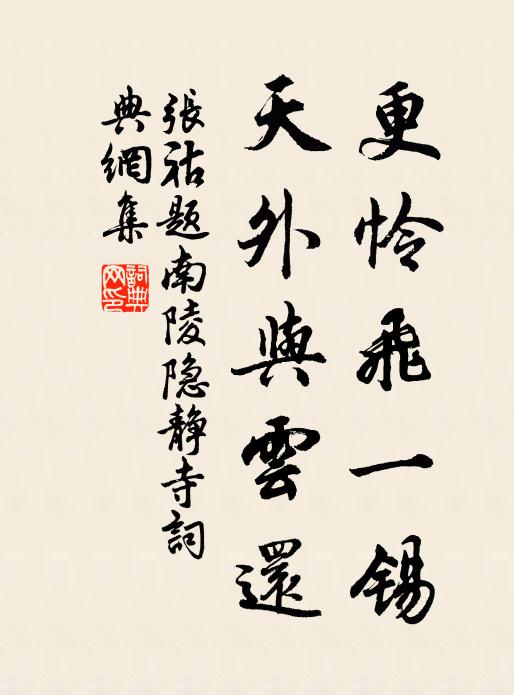 更怜飛一锡
天外與雲還
張祜题南陵隐静寺詞
典網集
詞典
网印